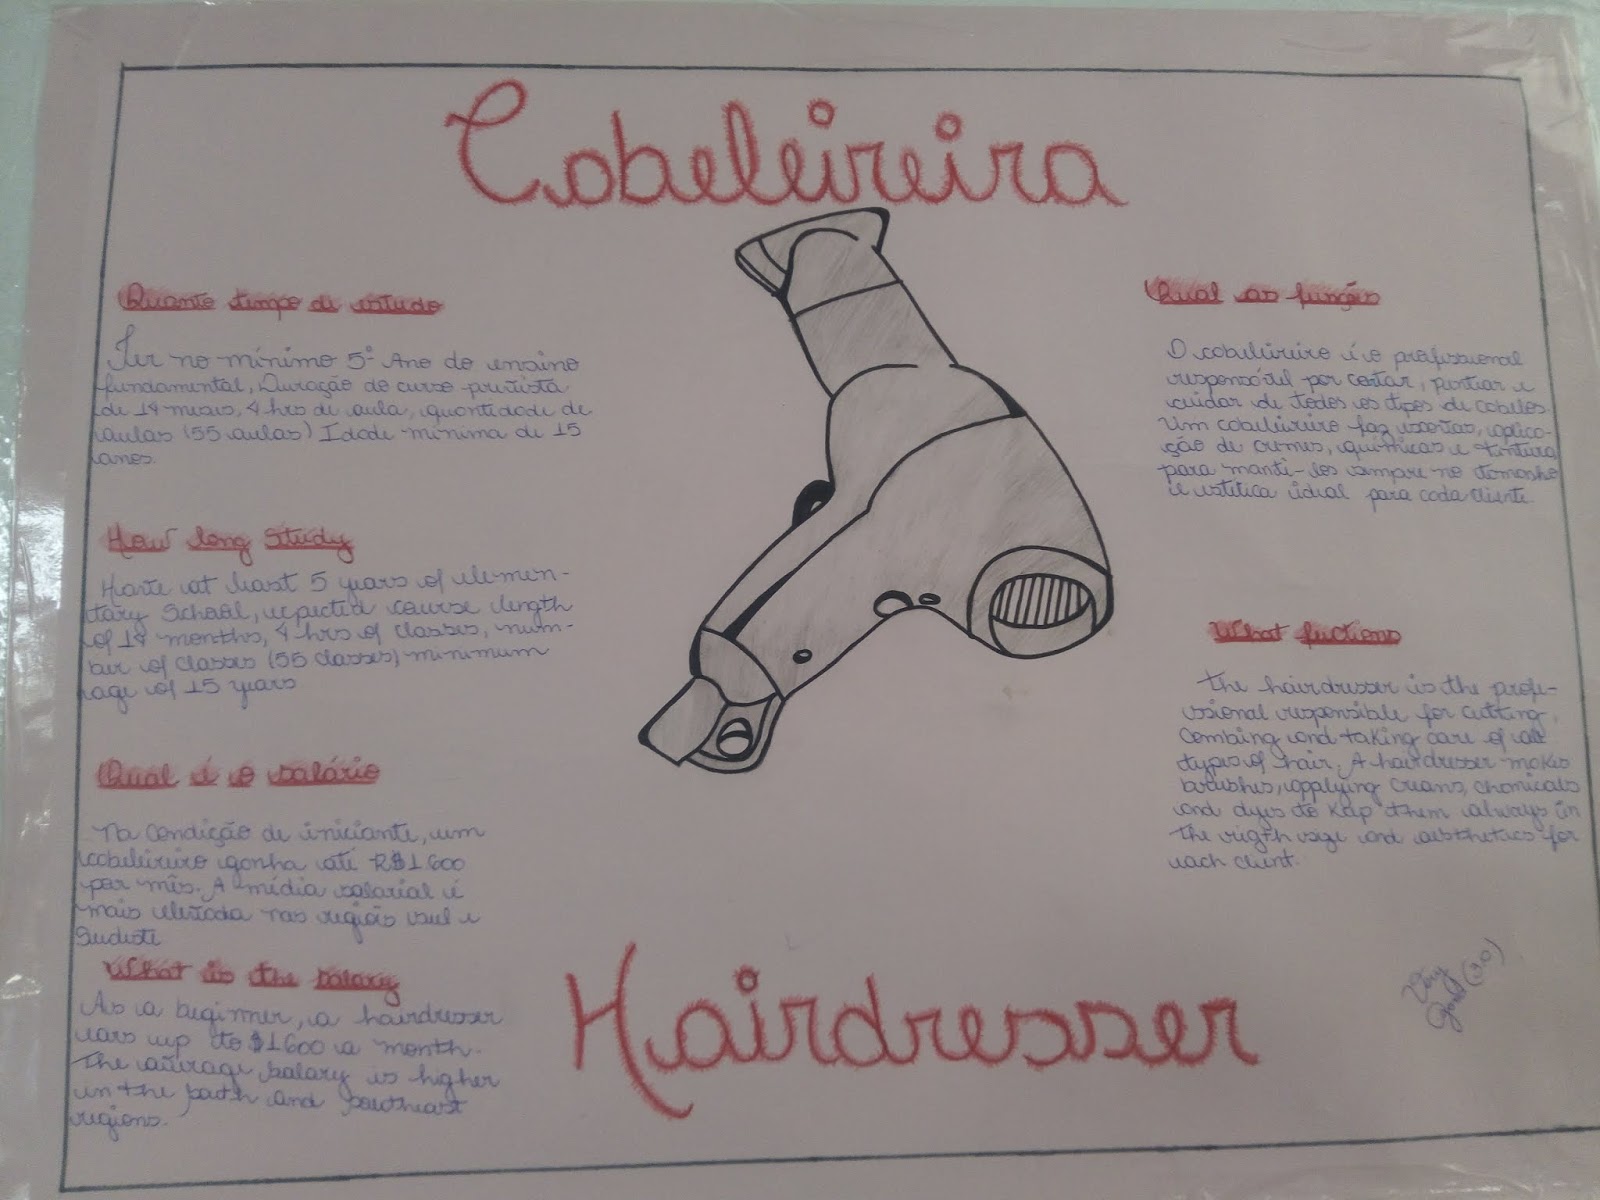 Cabeleireira
Quanto tempo de estudo
Ter no mínimo 5º Ano do ensino
fundamental, Duração do curso prevista
de 14 meses, 4 hrs de aula, quantidade de
aulas (55 aulas) Idade mínima de 15
anos.
How long Study
Have at least 5 years of elemen-
tary School, expected course length
of 14 months, 4 hrs of classes, num-
ber of classes (55 classes) minimum
age of 15 years
Qual é o salário
Na condição de iniciante, um
cabeleireiro ganha até R$1.600
por mês. A média salarial é
mais elevada nas regiões sul e
Sudeste
What is the salary
As a beginner, a hairdresser
ears up to $1600 a month.
The average salary is higher
in the south and southeast
regions.
Qual as funções
O cabeleireiro é o profissional
responsável por cortar, pentear e
cuidar de todos os tipos de cabelos.
Um cabeleireiro faz escovas, aplica-
ção de cremes, químicas e tintura
para mantê-los sempre no tamanho
e estética ideal para cada cliente.
What fuctions
The hairdresser is the profe-
ssional responsible for cutting,
combing and taking care of all
types of hair. A hairdresser makes
brushes, applying creams, chemicals
and dyes to kep them always in
the rigth size and aesthetics for
each client.
Very
Good (3.0)
Hairdresser